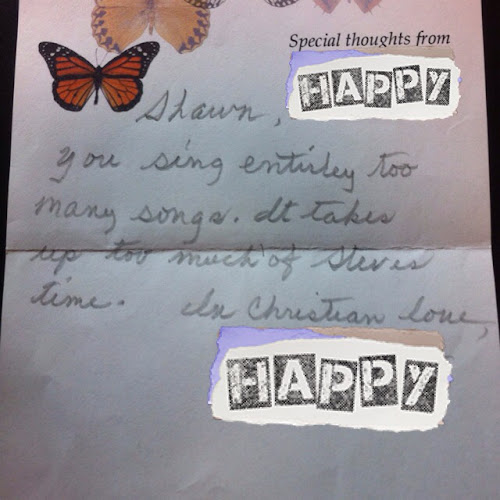 Special thoughts from
HAPPY
Shawn,
you sing entirley too
many songs. It takes
up too much of Steves
time. In Christian love,
HAPPY